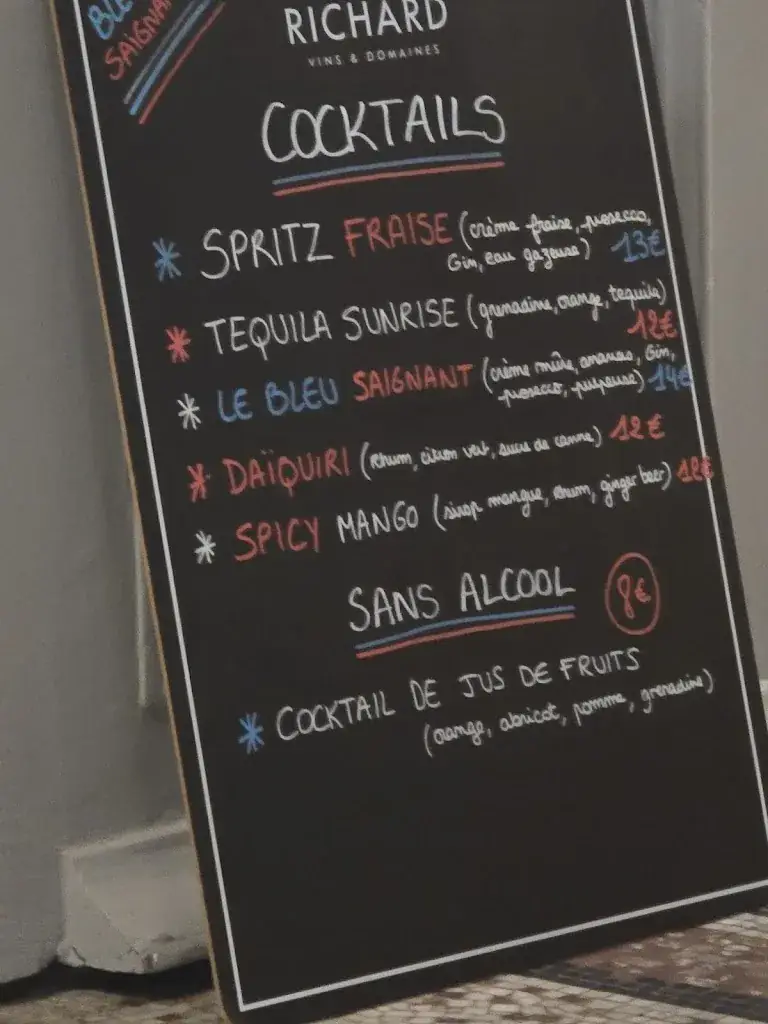 BLE
SAIGNA
RICHARD
VINS & DOMAINES
COCKTAILS
* SPRITZ FRAISE (crème fraise, prosecco,
Gin, eau gazeuse) 13€
* TEQUILA SUNRISE (grenadine, orange, tequila)
12€
* LE BLEU SAIGNANT (crème mûre, ananas, Gin,
prosecco, pulpeuse) 14€
* DAÏQUIRI (rhum, citron vert, sucre de canne) 12€
* SPICY MANGO (sirop mangue, rhum, ginger beer) 12€
SANS ALCOOL 8€
* COCKTAIL DE JUS DE FRUITS
(orange, abricot, pomme, grenadine)